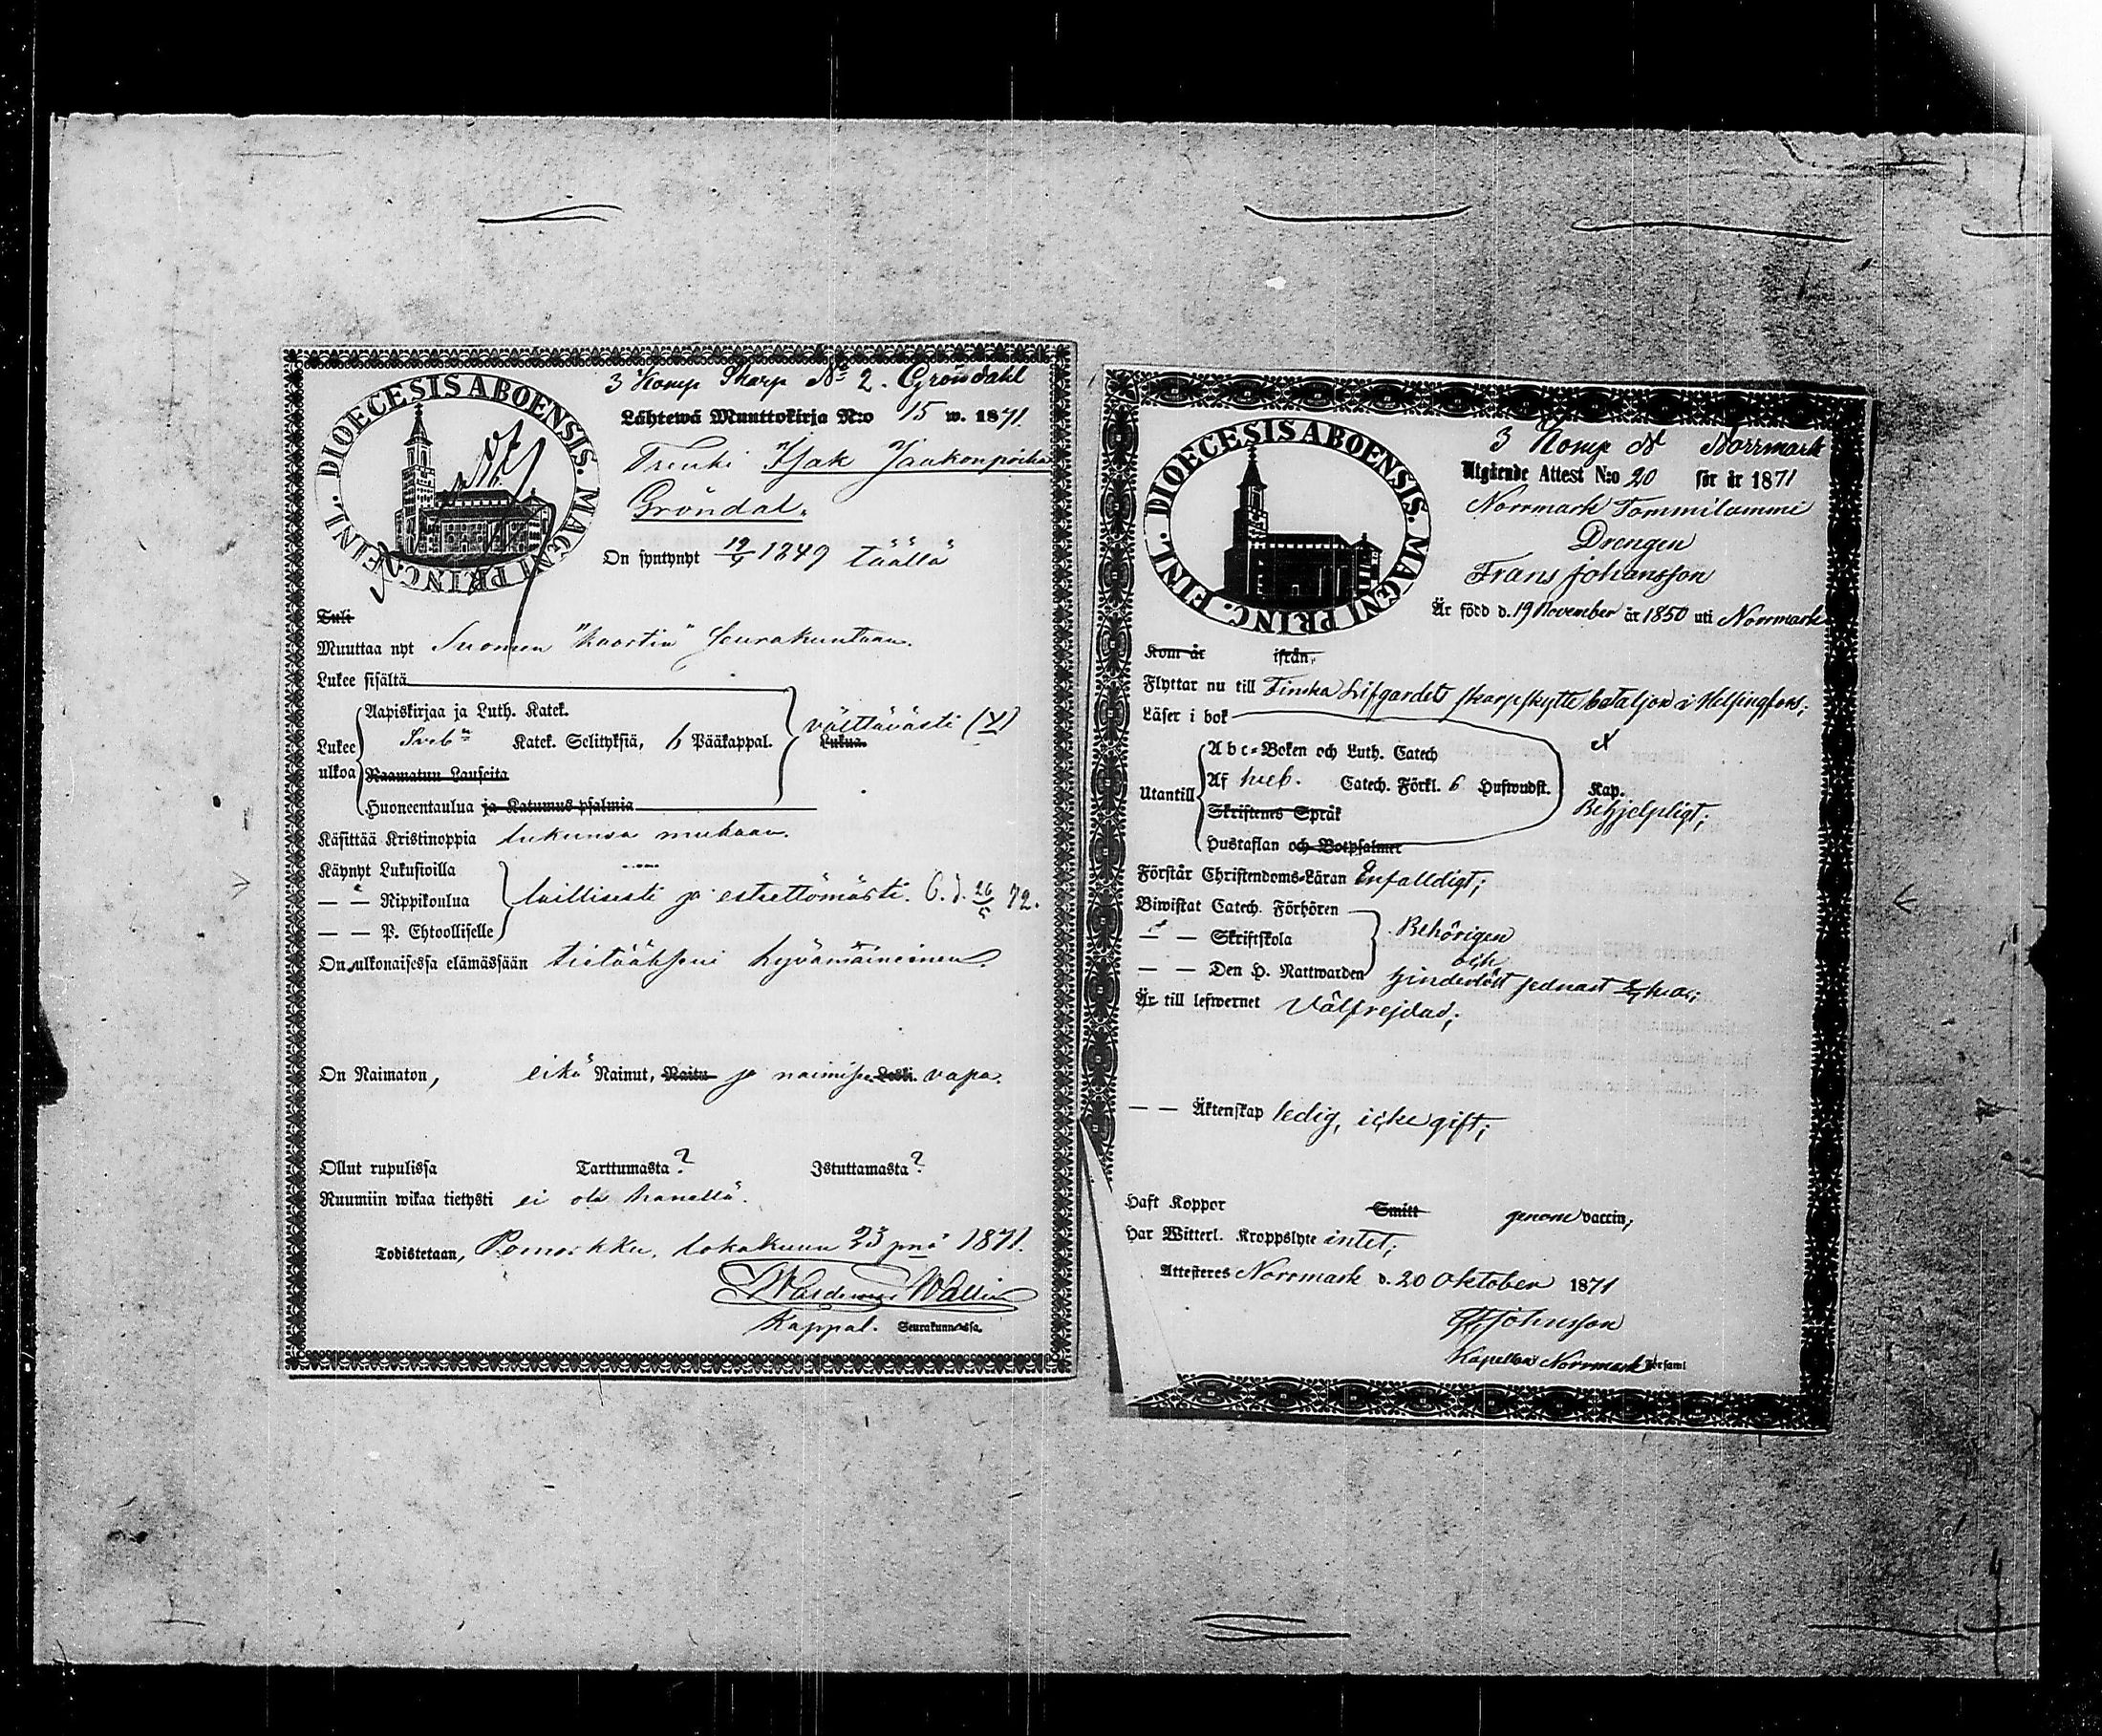 3 Komp Skarp No 2. Gröndahl
DIOECESIS ABOENSIS. MAGNI PRINC. FINL.
Lähtewä Muuttokirja N:o 15 w. 1871
Trenki Isak Jaakonpoika
Gröndal.
On syntynyt 19/4 1849 täällä
Tuli
Muuttaa nyt Suomen "kaartin" seurakuntaan.
Lukee sisältä
Aapiskirjaa ja Luth. Katek.
välttävästi (v)
Lukee Sveb Katek. Selityksiä, 6 Pääkappal. Lukua.
ulkoa Raamatun Lauseita
Huoneentaulua ja Katumus psalmia
Käsittää Kristinoppia lukunsa mukaan.
Käynyt Lukusioilla
— — Rippikoulua laillisesti ja esteettömästi. 26/5 72.
— — P. Ehtoolliselle
On ulkonaisessa elämässään tietääkseni hyvämaineinen.
On Naimaton, eikä Nainut, Naitu ja naimisee Leski. vapa.
Ollut rupulissa Tarttumasta? Istuttamasta?
Ruumiin wikaa tietysti ei ole hänellä.
Todistetaan, Pomarkku, lokakuun 23 pnä 1871.
Wallin
Kappal. Seurakunnassa.
3 Komp N Norrmark
DIOECESIS ABOENSIS. MAGNI PRINC. FINL.
Utgående Attest N:o 20 för år 1871
Norrmark Tommilammi
Drengen
Frans Johansson
Är född d. 19 November år 1850 uti Norrmark
Kom år ifrån,
Flyttar nu till Finska Lifgardets skarpskytte bataljon i Helsingfors;
Läser i bok
Abc-Boken och Luth. Catech
Utantill Af sveb. Catech. Förkl. 6 Hufwudst. Kap.
Behjelpligt;
Skriftenes Språk
Hustaflan och Botpsalmer
Förstår Christendoms-Läran Enfalldigt;
Biwistat Catech. Förhören
— — Skriftskola Behörigen
och
— — Den H. Nattwarden hinderlöst sednast
Är till lefwernet Välfrejdad;
— — Äktenskap ledig, icke gift;
Haft Koppor Smitt genom vaccin;
Har Witterl. Kroppslyte intet;
Attesteres Norrmark d. 20 Oktober 1871
Johnsson
Kapellan Norrmark Församl